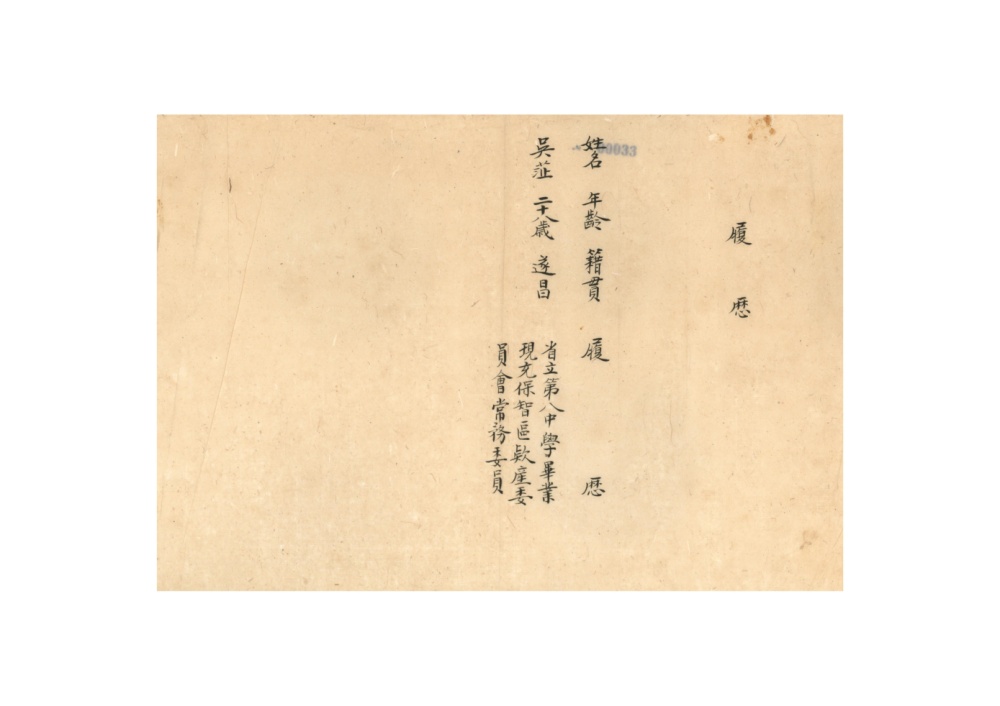 履歷
姓名 年齡 籍貫 履歷
0033
吳茳 二十八歲 遂昌 省立第八中學畢業
現充保智區款產委
員會常務委員